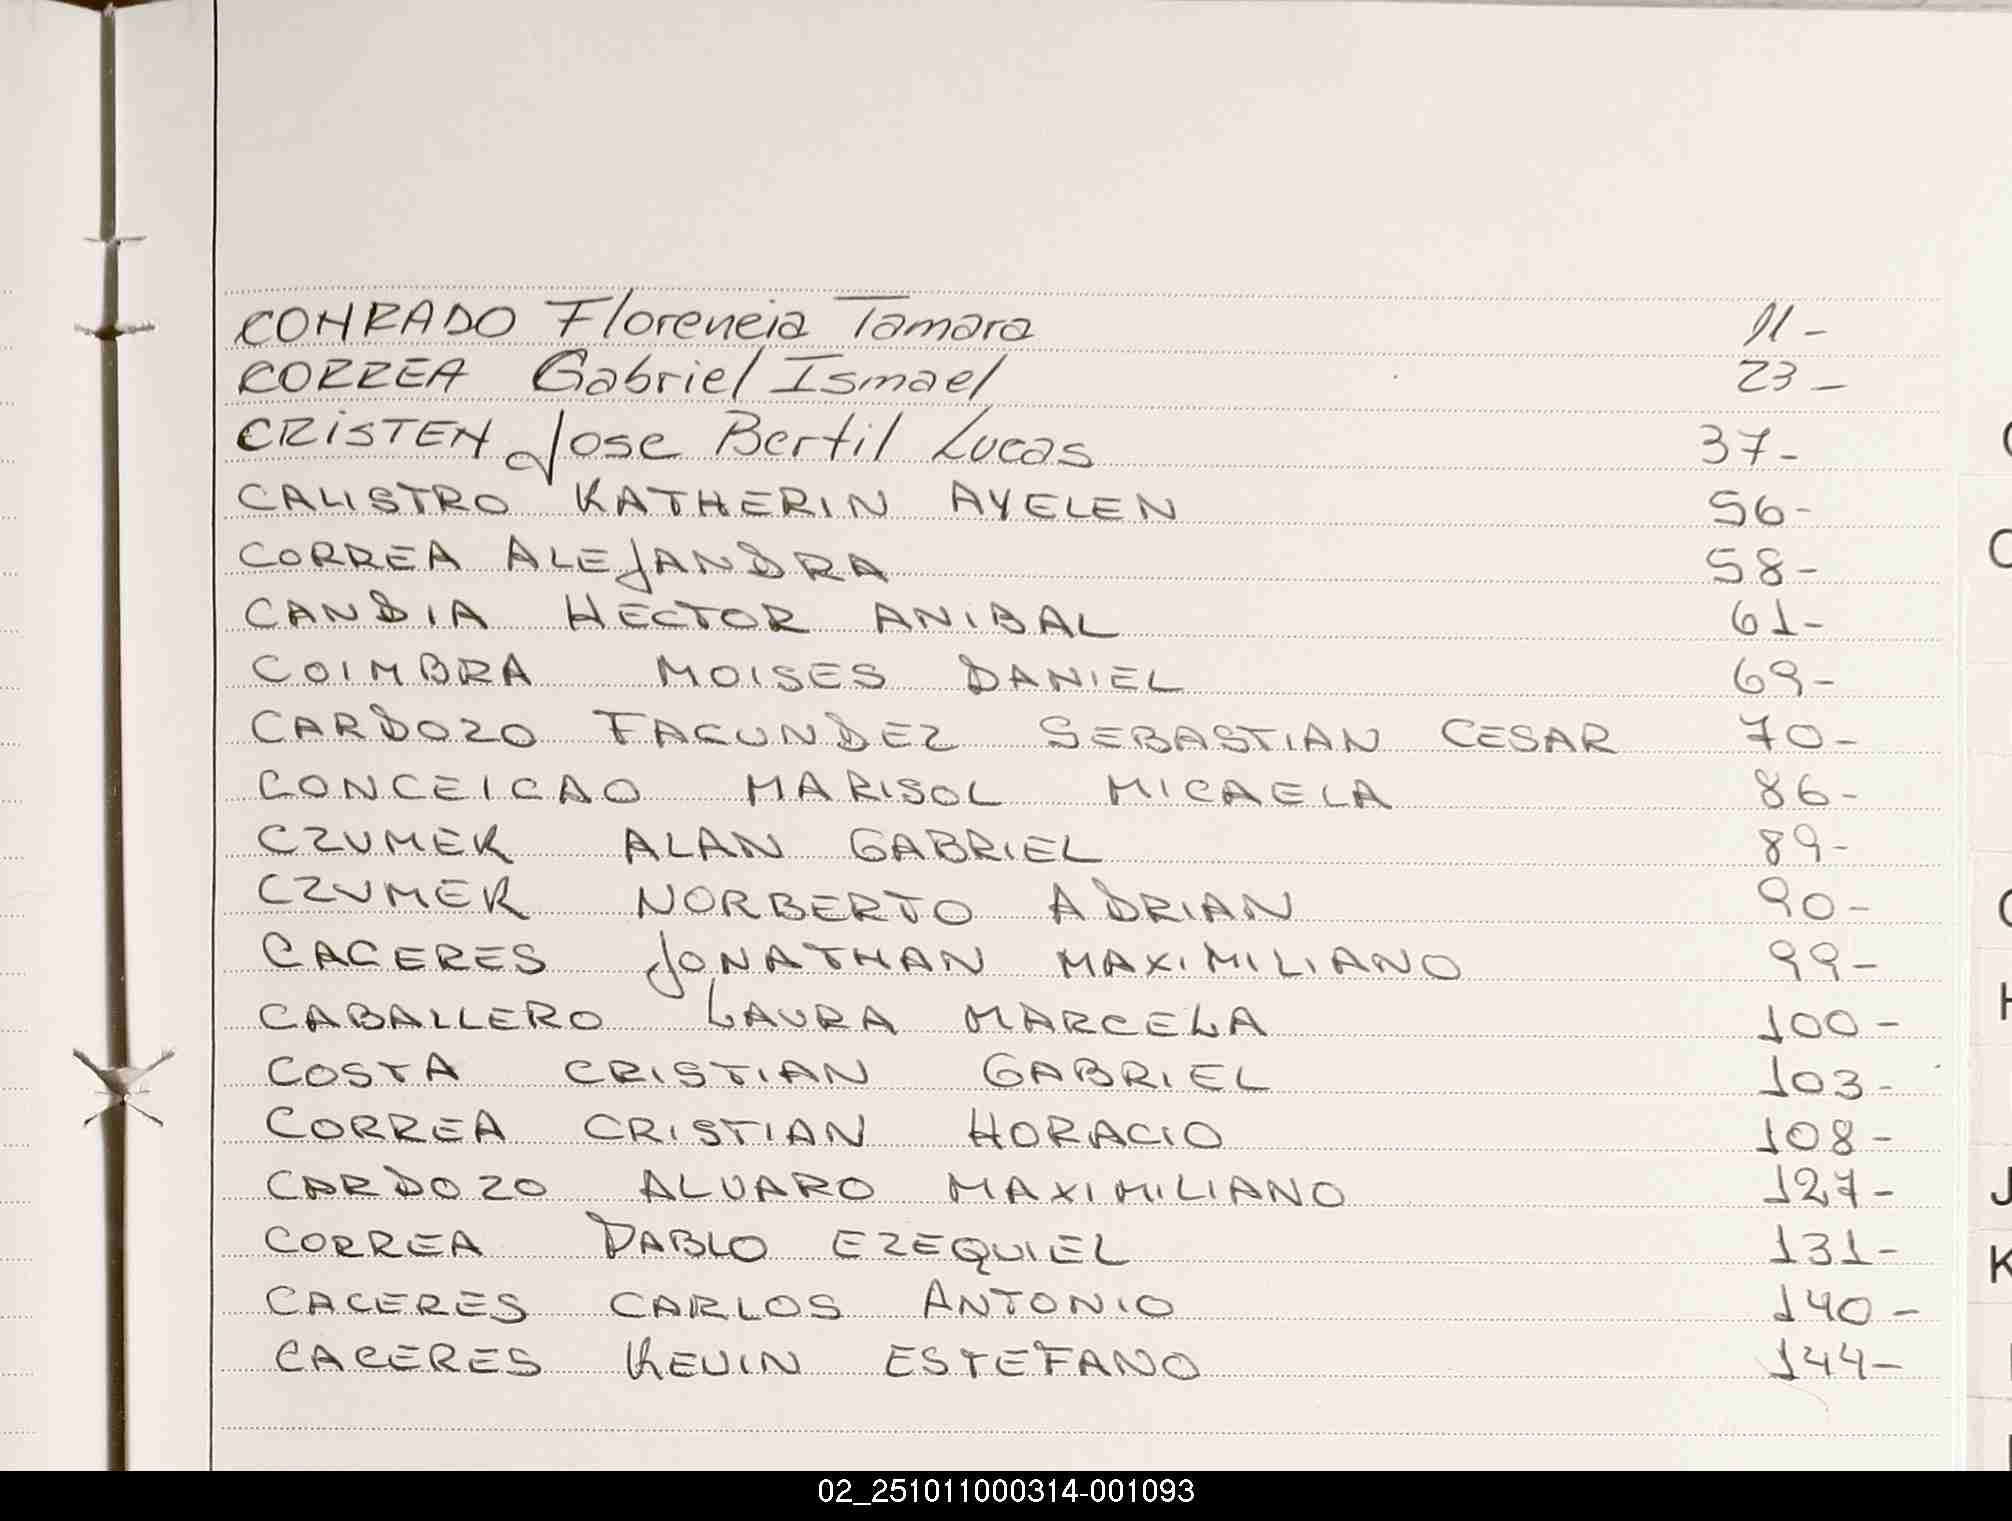 CONRADO Florencia Tamara 11-
CORREA Gabriel Ismael 23-
CRISTEN Jose Bertil Lucas 37-
CALISTRO KATHERIN AYELEN 56-
CORREA ALEJANDRA 58-
CANDIA HECTOR ANIBAL 61-
COIMBRA MOISES DANIEL 69-
CARDOZO FACUNDEZ SEBASTIAN CESAR 70-
CONCEICAO MARISOL MICAELA 86-
CZUMEK ALAN GABRIEL 89-
CZUMEK NORBERTO ADRIAN 90-
CACERES JONATHAN MAXIMILIANO 99-
CABALLERO LAURA MARCELA 100-
COSTA CRISTIAN GABRIEL 103-
CORREA CRISTIAN HORACIO 108-
CARDOZO ALVARO MAXIMILIANO 127-
CORREA PABLO EZEQUIEL 131-
CACERES CARLOS ANTONIO 140-
CACERES KEVIN ESTEFANO 144-
J
K
02_251011000314-001093